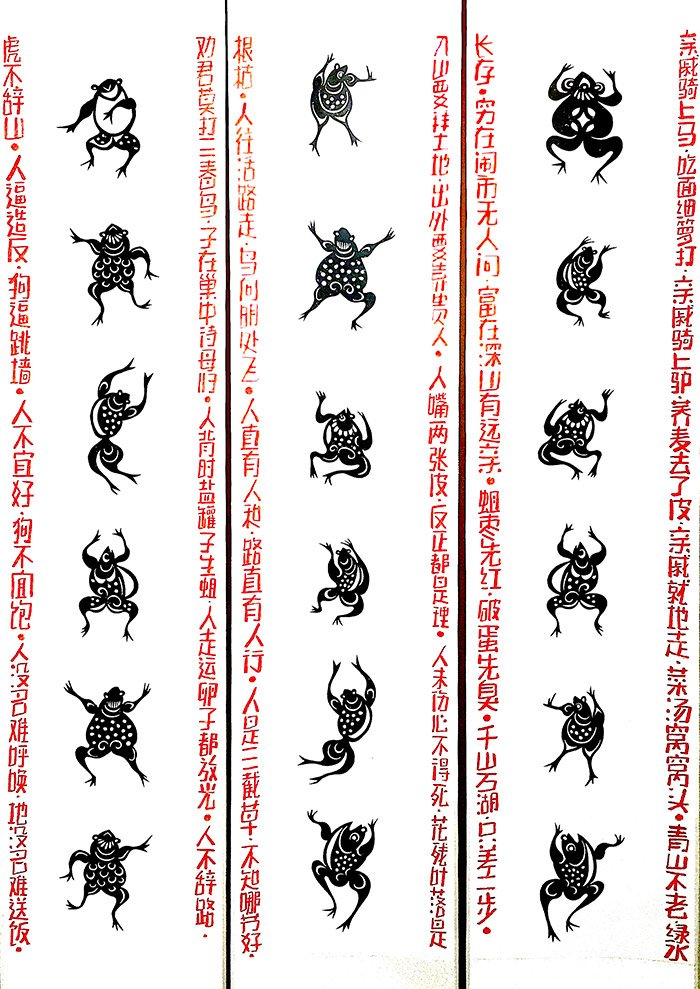 亲戚骑上马·吃面细箩打·亲戚骑上驴·荞麦去了皮·亲戚就地走·菜汤窝窝头●青山不老·绿水
长存●穷在闹市无人问·富在深山有远亲●蛆枣先红·破蛋先臭●千山万湖·只差一步●
入山要拜土地·出外要弄贵人●人嘴两张皮·反正都是理●人未伤心不得死·花残叶落是
根枯●人往活路走·鸟向明处飞●人直有人和·路直有人行●人是三截草·不知哪节好●
劝君莫打三春鸟·子在巢中待母归●人背时盐罐子生蛆·人走运卵子都放光●人不辞路·
虎不辞山●人逼造反·狗逼跳墙●人不宜好·狗不宜饱●人没名难呼唤·地没名难送饭●